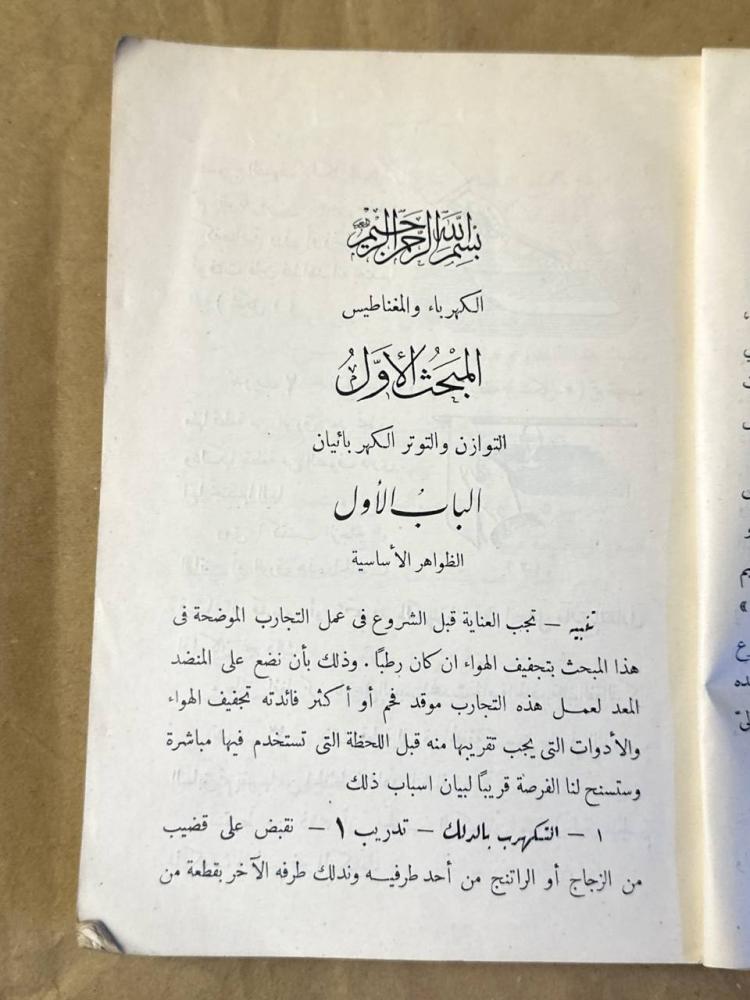 بسم الله الرحمن الرحيم
الكهرباء والمغناطيس
المبحث الأول
التوازن والتوتر الكهربائيان
الباب الأول
الظواهر الأساسية
تنبيه – تجب العناية قبل الشروع فى عمل التجارب الموضحة فى
هذا المبحث بتجفيف الهواء ان كان رطبًا. وذلك بأن نضع على المنضد
المعد لعمل هذه التجارب موقد فحم أو أكثر فائدته تجفيف الهواء
والأدوات التى يجب تقريبها منه قبل اللحظة التى تستخدم فيها مباشرة
وستسنح لنا الفرصة قريبًا لبيان اسباب ذلك
١ – التكهرب بالدلك – تدريب ١ – نقبض على قضيب
من الزجاج أو الراتنج من أحد طرفيه وندلك طرفه الآخر بقطعة من